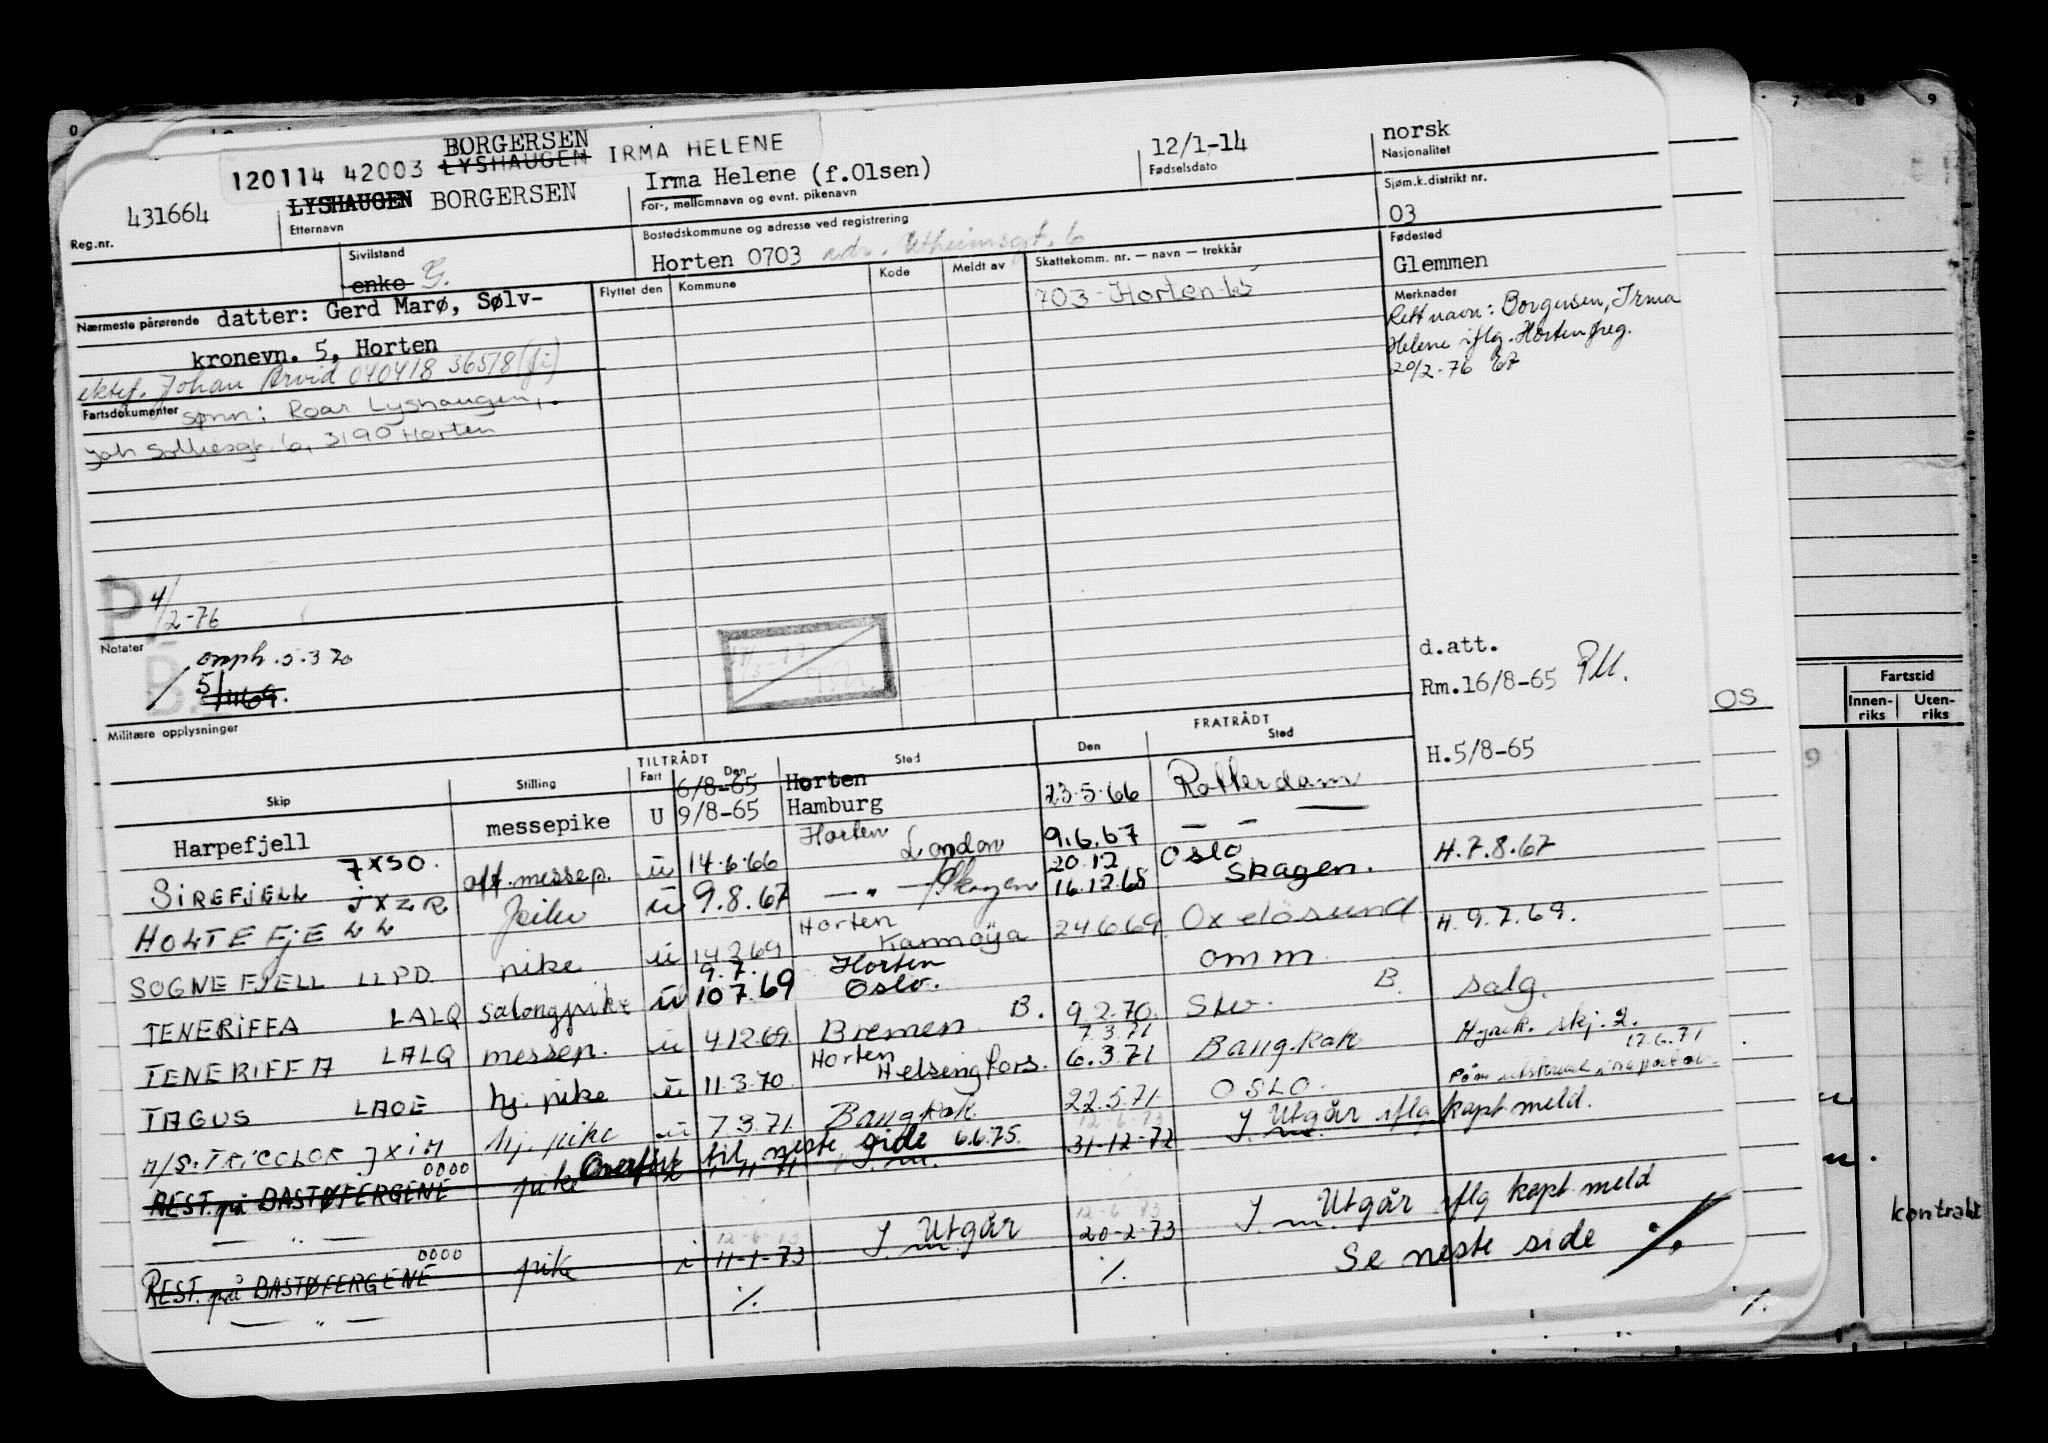 BORGERSEN
120114 42003 LYSHAUGEN IRMA HELENE
Reg.nr. 431664
LYSHAUGEN BORGERSEN
Etternavn
Irma Helene (f.Olsen)
For-, mellomnavn og evnt. pikenavn
12/1-14
Fødselsdato
norsk
Nasjonalitet
Sivilstand
enke G.
Bostedskommune og adresse ved registrering
Horten 0703 adr.
Sjøm.k.distrikt nr.
03
Nærmeste pårørende datter: Gerd Marø, Sølv-
kronevn. 5, Horten
ektef. Johan Arvid 040418 36518
Fartsdokumenter sønn: Roar Lyshaugen,
3190 Horten
Flyttet den
Kommune
Kode
Meldt av
Skattekomm. nr. — navn — trekkår
703 - Horten
Fødested
Glemmen
Merknader
Rett navn: Borgersen, Irma
Helene iflg. Horten freg.
20/2-76
P. 4/2-76
Notater
omph. 5.3 70
B.
Militære opplysninger
d.att.
Rm.16/8-65
H.5/8-65
Skip
Stilling
TILTRÅDT
Fart
Den
Sted
FRATRÅDT
Den
Sted
6/8-65 Horten
Harpefjell messepike U 9/8-65 Hamburg 23.5.66 Rotterdam
SIREFJELL JXSO. off. messep. u 14.6.66 Horten London 9.6.67 — —
HOLTEFJELL JXZR u 9.8.67 — " — Skagen 20.12 Oslo
16.12.68 Skagen.
H.7.8.67
SOGNEFJELL LLPD pike u 14.3.69 Horten Karmøya 24.6.69 Oxelösund H.9.7.69.
TENERIFFA LALQ salongpike u 9.7. 10.7.69 Horten Oslo. omm
TENERIFFA LALQ messep. u 4.12.69 Bremen B. 9.2.70. B. salg.
TAGUS LAOE hj. pike u 11.3.70 Horten Helsingfors. 7.3.71
6.3.71 Bangkok
M/S. TRICOLOR JXIM hj. pike u 7.3.71 Bangkok 22.5.71 OSLO.
17.6.71
Overført til neste side 6.6.75.
0000
REST. på BASTØFERGENE pike 31-12-72 Utgår iflg kapt meld.
— " —
0000
REST. på BASTØFERGENE pike i 11-1-73 Utgår 20-2-73 Utgår iflg kapt meld
— " —
Se neste side ./.
Fartstid
Innen-
riks
Uten-
riks
OS
kontrakt